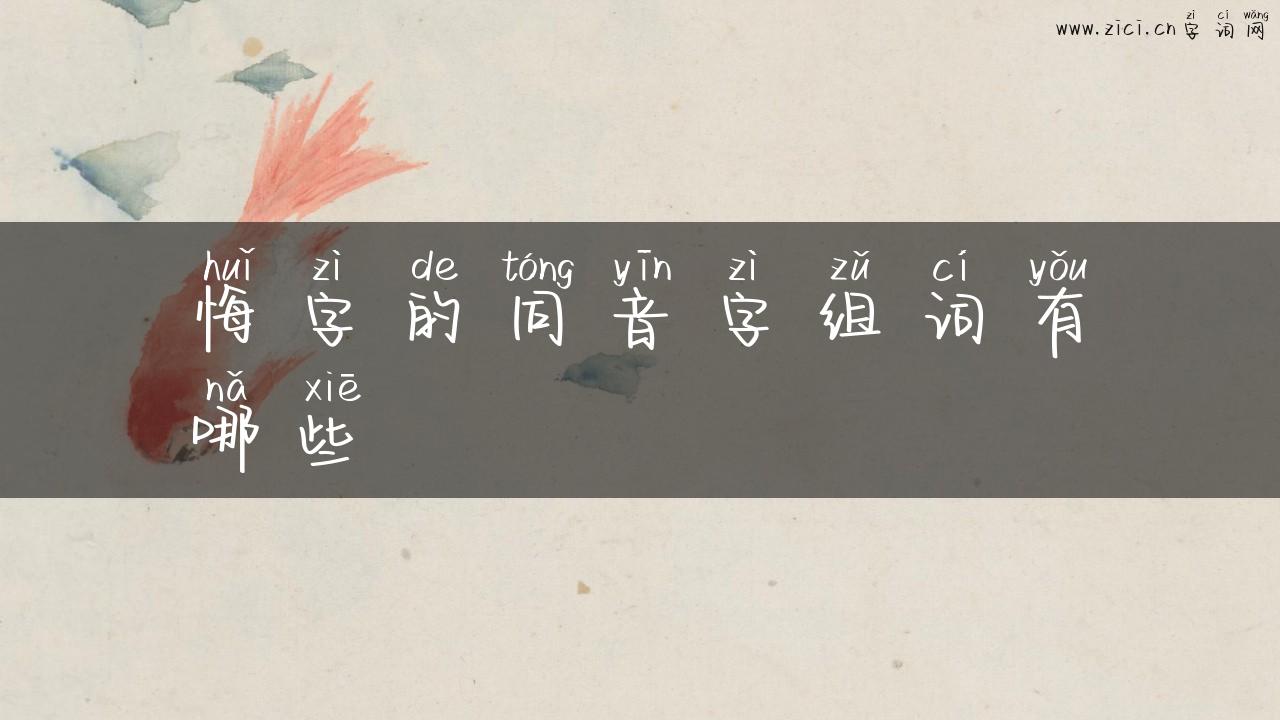 zì cí wǎng
www.zici.cn 字词网
huǐ zì de tóng yīn zì zǔ cí yǒu
悔字的同音字组词有
nǎ xiē
哪些